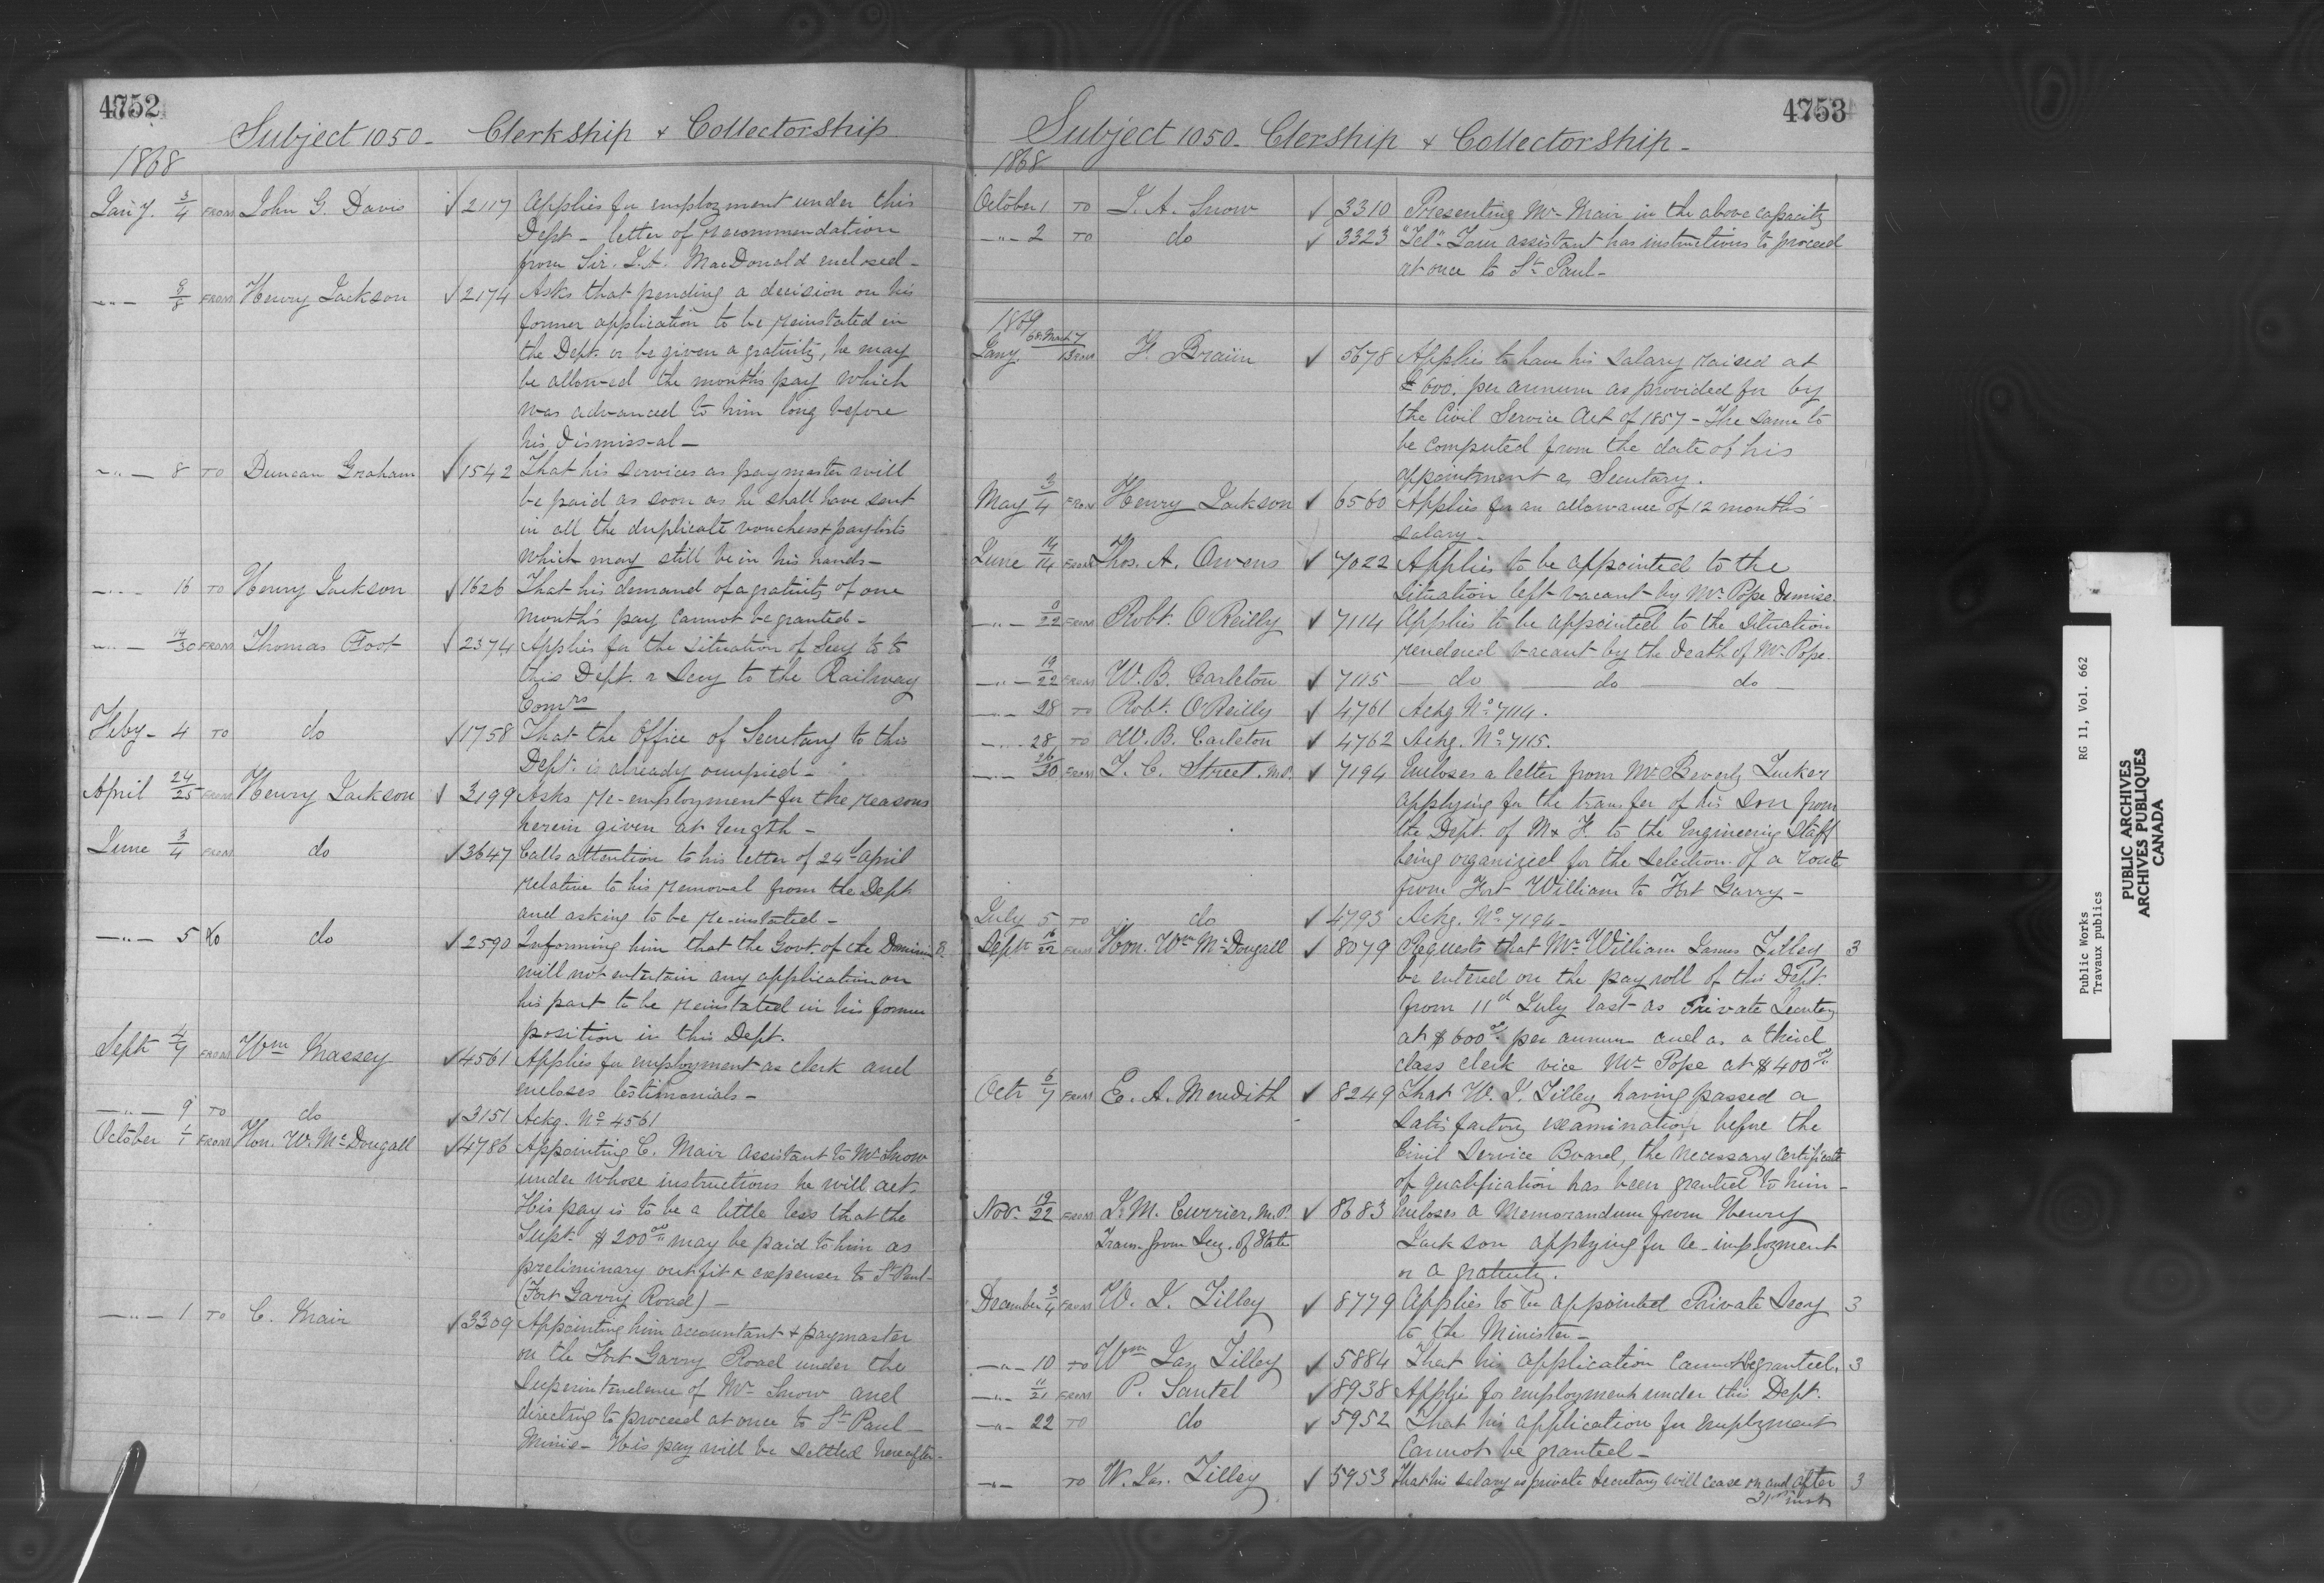 4752
Subject 1050 - Clerkship & Collectorship
1868
Jany. 3/4 FROM John G. Davis √ 2117 Applies for employment under this
Dept - letter of recommendation
from Sir. J. A. MacDonald enclosed -
-"- 8/8 FROM Henry Jackson √ 2174 Asks that pending a decision on his
former application to be reinstated in
the Dept. or be given a gratuity, he may
be allowed the month's pay which
was advanced to him long before
his dismiss-al -
-"- 8 TO Duncan Graham √ 1542 That his services as paymaster will
be paid as soon as he shall have sent
in all the duplicate vouchers & paylists
which may still be in his hands -
-"- 16 TO Henry Jackson √ 1626 That his demand of a gratuity of one
month's pay cannot be granted -
-"- /30 FROM Thomas Foot √ 2374 Applies for the situation of Secy to to
this Dept. or Secy to the Railway
Comrs
Feby - 4 TO do √ 1758 That the Office of Secretary to this
Dept. is already occupied -
April 24/25 FROM Henry Jackson √ 3199 Asks re-employment for the reasons
herein given at length -
June 3/4 FROM do √ 3647 Calls attention to his letter of 24th April
relative to his removal from the Dept
and asking to be re-instated -
-"- 5 to do √ 2590 Informing him that the Govt. of the Dominion
will not entertain any application on
his part to be reinstated in his former
position in this Dept.
Sept 4/7 FROM Wm Massey √ 4561 Applies for employment as clerk and
encloses testimonials -
-"- 9 TO do √ 3151 Ackg. No 4561
October 1/1 FROM Hon. W. McDougall √ 4786 Appointing C. Mair assistant to Mr Snow
under whose instructions he will act.
His pay is to be a little less that the
Supt. $200 00 may be paid to him as
preliminary outfit & expenses to St Paul -
(Fort Garry Road) -
-"- 1 TO C. Mair √ 3309 Appointing him accountant & paymaster
on the Fort Garry Road under the
Superintendence of Mr Snow and
directing to proceed at once to St Paul -
Minie - His pay will be settled hereafter -
4753
Subject 1050 - Clership & Collectorship -
1868
October 1 TO J. A. Snow √ 3310 Presenting Mr Mair in the above capacity
-"- 2 TO do √ 3323 "Tel" Your assistant has instructions to proceed
at once to St Paul -
1869
Jany. 68 March 7/13 FROM F. Braün √ 5678 Applies to have his salary raised at
£600. per annum as provided for by
the Civil Service Act of 1857 - The same to
be computed from the date of his
appointment as Secretary.
May 3/4 FROM Henry Jackson √ 6560 Applies for an allowance of 12 month's
salary -
June 14/14 FROM Thos. A. Owens √ 7022 Applies to be appointed to the
situation left vacant by Mr Pope demise.
-"- /22 FROM Robt. O'Reilly √ 7114 Applies to be appointed to the situation
rendered vacant by the death of Mr. Pope.
-"- 19/22 FROM W. B. Carleton √ 7115 - do - do - do -
-"- 28 TO Robt. O'Reilly √ 4761 Ackg No 7114.
-"- 28 TO W. B. Carleton √ 4762 Ackg. No 7115.
-"- 26/30 FROM T. C. Street. M.P. √ 7194 Encloses a letter from Mr Beverly Tucker
applying for the transfer of his son from
the Dept. of M & F. to the Engineering Staff
being organized for the selection of a route
from Fort William to Fort Garry -
July 5 TO do √ 4793 Ackg. No 7194 -
Sept 16/22 FROM Hon. Wm McDougall √ 8079 Requests that Mr William James Tilley 3
be entered on the pay roll of this Dept.
from 11th July last as Private Secretary
at $600 00 per annum and as a third
class clerk vice Mr Pope at $400 00
Octr 6/7 FROM E. A. Meredith √ 8249 That W. J. Tilley having passed a
satisfactory examination before the
Civil Service Board, the necessary certificate
of qualification has been granted to him -
Nov. 19/22 FROM J. M. Currier, M.P. √ 8683 Encloses a memorandum from Henry
Trans. from Secy. of State Jackson applying for re-employment
or a gratuity.
December 3/4 FROM W. J. Tilley √ 8779 Applies to be appointed Private Secy 3
to the Minister -
-"- 10 TO Wm Jas Tilley √ 5884 That his application cannot be granted. 3
-"- 11/21 FROM P. Santel √ 8938 Applies for employment under this Dept.
-"- 22 TO do √ 5952 That his application for employment
cannot be granted -
-"- TO W. Jas. Tilley √ 5953 That his salary as private Secretary will cease on and after 3
31st inst
Public Works RG 11, Vol. 662
Travaux publics
PUBLIC ARCHIVES
ARCHIVES PUBLIQUES
CANADA